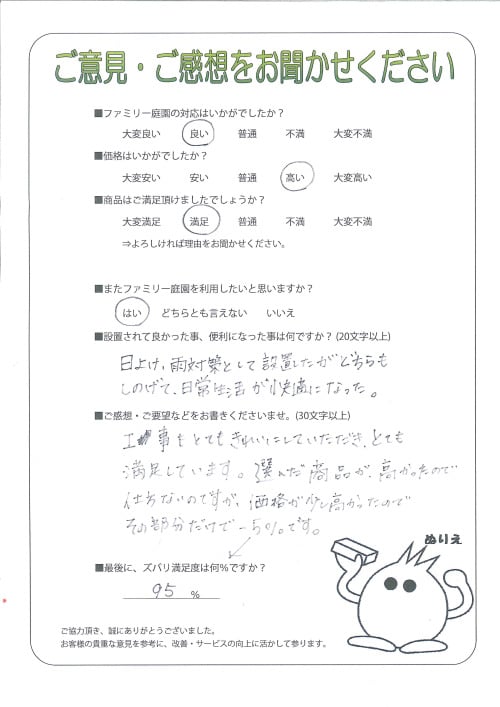 ご意見・ご感想をお聞かせください
■ファミリー庭園の対応はいかがでしたか？
大変良い 良い 普通 不満 大変不満
■価格はいかがでしたか？
大変安い 安い 普通 高い 大変高い
■商品はご満足頂けましたでしょうか？
大変満足 満足 普通 不満 大変不満
⇒よろしければ理由をお聞かせください。
■またファミリー庭園を利用したいと思いますか？
はい どちらとも言えない いいえ
■設置されて良かった事、便利になった事は何ですか？(20文字以上)
日よけ，雨対策として設置したがどちらも
しのげて、日常生活が快適になった。
■ご感想・ご要望などをお書きくださいませ。(30文字以上)
工事もとてもきれいにしていただき、とても
満足しています。選んだ商品が、高かったので
仕方ないのですが、価格が少し高かったので
その部分だけで-5%です。
ぬりえ
■最後に、ズバリ満足度は何％ですか？
95 %
ご協力頂き、誠にありがとうございました。
お客様の貴重な意見を参考に、改善・サービスの向上に活かして参ります。